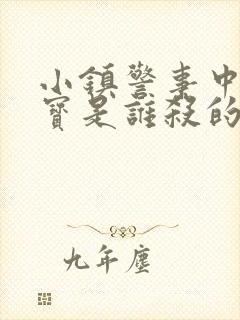 小鎮警事中
寶是誰殺的
九年塵